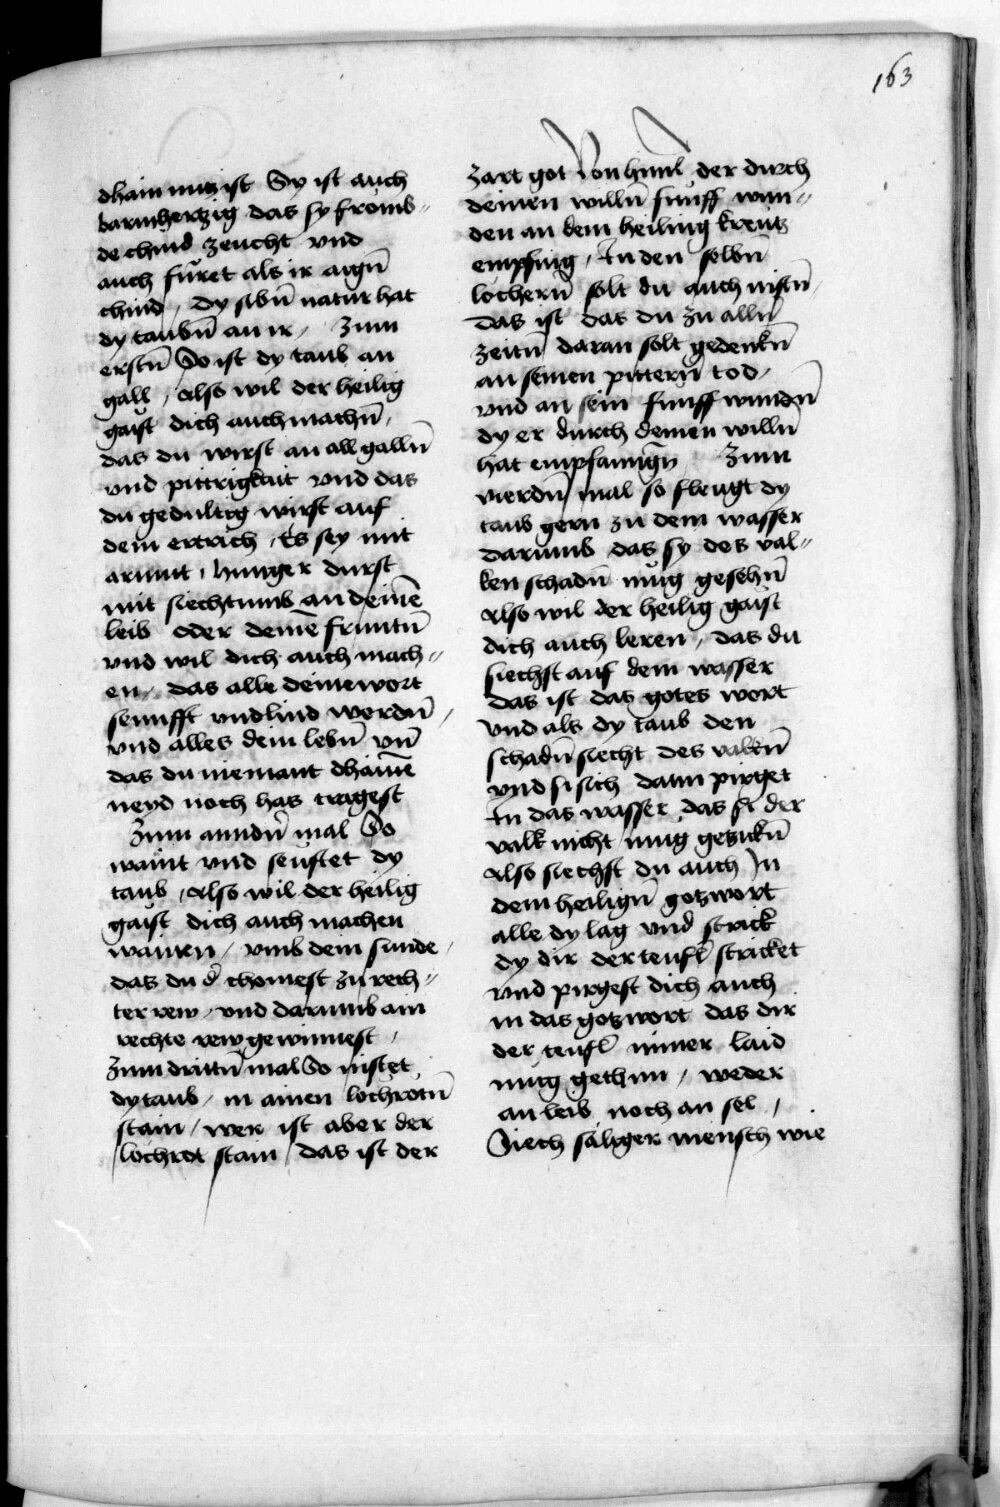 163
dhain nutz ist Sy ist auch
barmhertzig das sy fromb-
de chind zeucht vnd
auch fuͤret als ir aigñ
chind / Dy sibñ natur hat
dy taubñ an ir / Zum
erstñ So ist dy taub an
gall / Also wil der heilig
gaist dich auch machñ /
das du wirst an all gallñ
vnd pittrigkait vnd das
du gedultig wirst auf
dem ertrich / Es sey mit
armut / hunger durst
mit siechtumb an deinẽ
leib oder deinẽ fruntñ
vnd wil dich auch mach-
en / das alle deine wort
sennfft vnd lind werdñ /
vnd alles dein lebñ vñ
das du niemant dhainẽ
neyd noch has tragest
Zum anndñ mal So
waint vnd seuftet dy
taub / Also wil der heilig
gaist dich auch machen
wainen / vmb dein sunde /
das du d̾ chomest zu rech-
ter rew / vnd darumb ain
rechte rew gewinnest /
Zum drittñ mal So nistet
dy taub / in ainen lochrotñ
stain / wer ist aber der
lochrot stain / das ist der
zart got Von himl der durch
deinen willñ funff wun-
den an dem heiling kreutz
empfing / In den selbñ
lochern̄ solt du auch nistñ /
das ist das du zu allñ
zeitñ daran solt gedenkñ
an seinen pittern̄ tod /
vnd an sein funff wundñ
dy er durch deinen willñ
hat empfanngñ Zum
vierdñ mal so fleugt dy
taub gern zu dem wasser
darumb das sy des val-
ken schadñ mug gesehñ
Also wil der heilig gaist
dich auch leren / das du
siechst auf dem wasser
das ist das gotes wort
vnd als dy taub den
schadñ siecht des valkñ
vnd si sich dann pirget
In das wasser das sy der
valk nicht mug gezukñ
Also siechst du auch In
dem heiligñ gotzwort
alle dy lag vnd strick
dy dir der teufl stricket
vnd pirgest dich auch
in das gotzwort das dir
der teufl nimer laid
mug gethun / weder
an leib noch an sel /
Siech saliger mensch wie